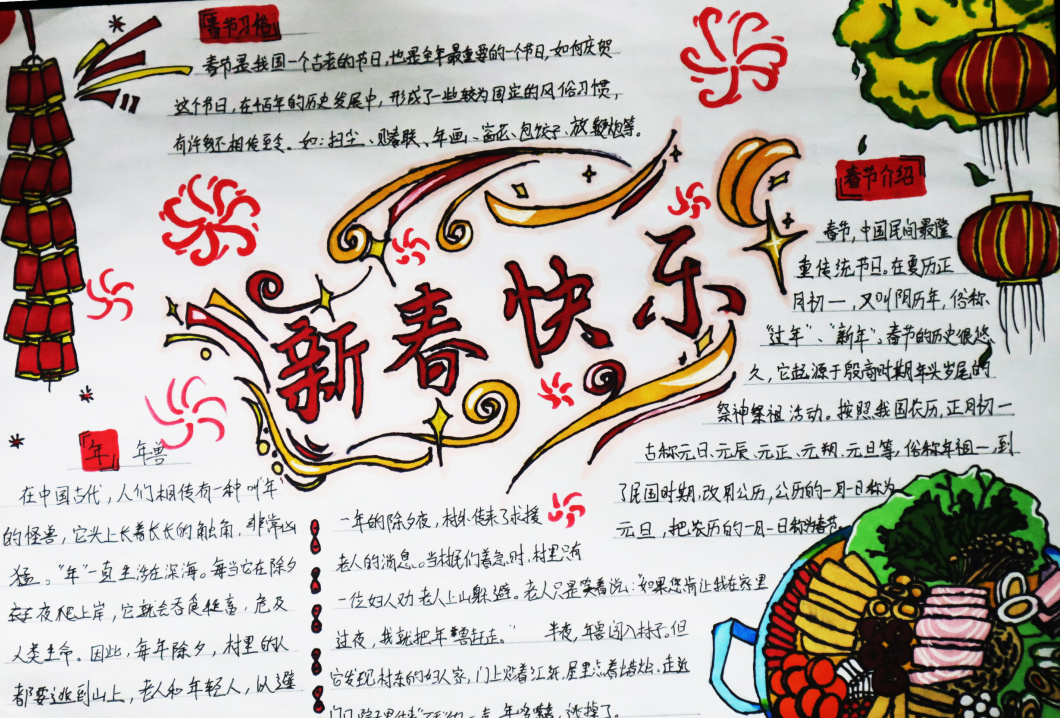 春节习俗
春节是我国一个古老的节日,也是全年最重要的一个节日,如何庆贺
这个节日,在千百年的历史发展中,形成了一些较为固定的风俗习惯,
有许多还相传至今。如:扫尘、贴春联、年画、窗花、包饺子、放鞭炮等。
新春快乐
春节介绍
春节,中国民间最隆
重传统节日。在夏历正
月初一,又叫阴历年,俗称
“过年”、“新年”。春节的历史很悠
久,它起源于殷商时期年头岁尾的
祭神祭祖活动。按照我国农历,正月初一
古称元日、元辰、元正、元朔、元旦等,俗称年初一,到
了民国时期,改用公历,公历的一月一日称为
元旦,把农历的一月一日称为春节。
『年』年兽
在中国古代,人们相传有一种叫“年”
的怪兽,它头上长着长长的触角,非常凶
猛。“年”一直生活在深海。每当它在除夕
夜爬上岸,它就会吞食牲畜,危及
人类生命。因此,每年除夕,村里的人
都要逃到山上,老人和年轻人,以避
一年的除夕夜,村外传来了求援
老人的消息。当村民们着急时,村里只有
一位妇人劝老人上山躲避。老人只是笑着说:“如果您肯让我在家里
过夜,我就把年兽赶走。” 半夜,年兽闯入村子。但
它发现村东的妇人家,门上贴着红纸,屋里点着蜡烛,走近